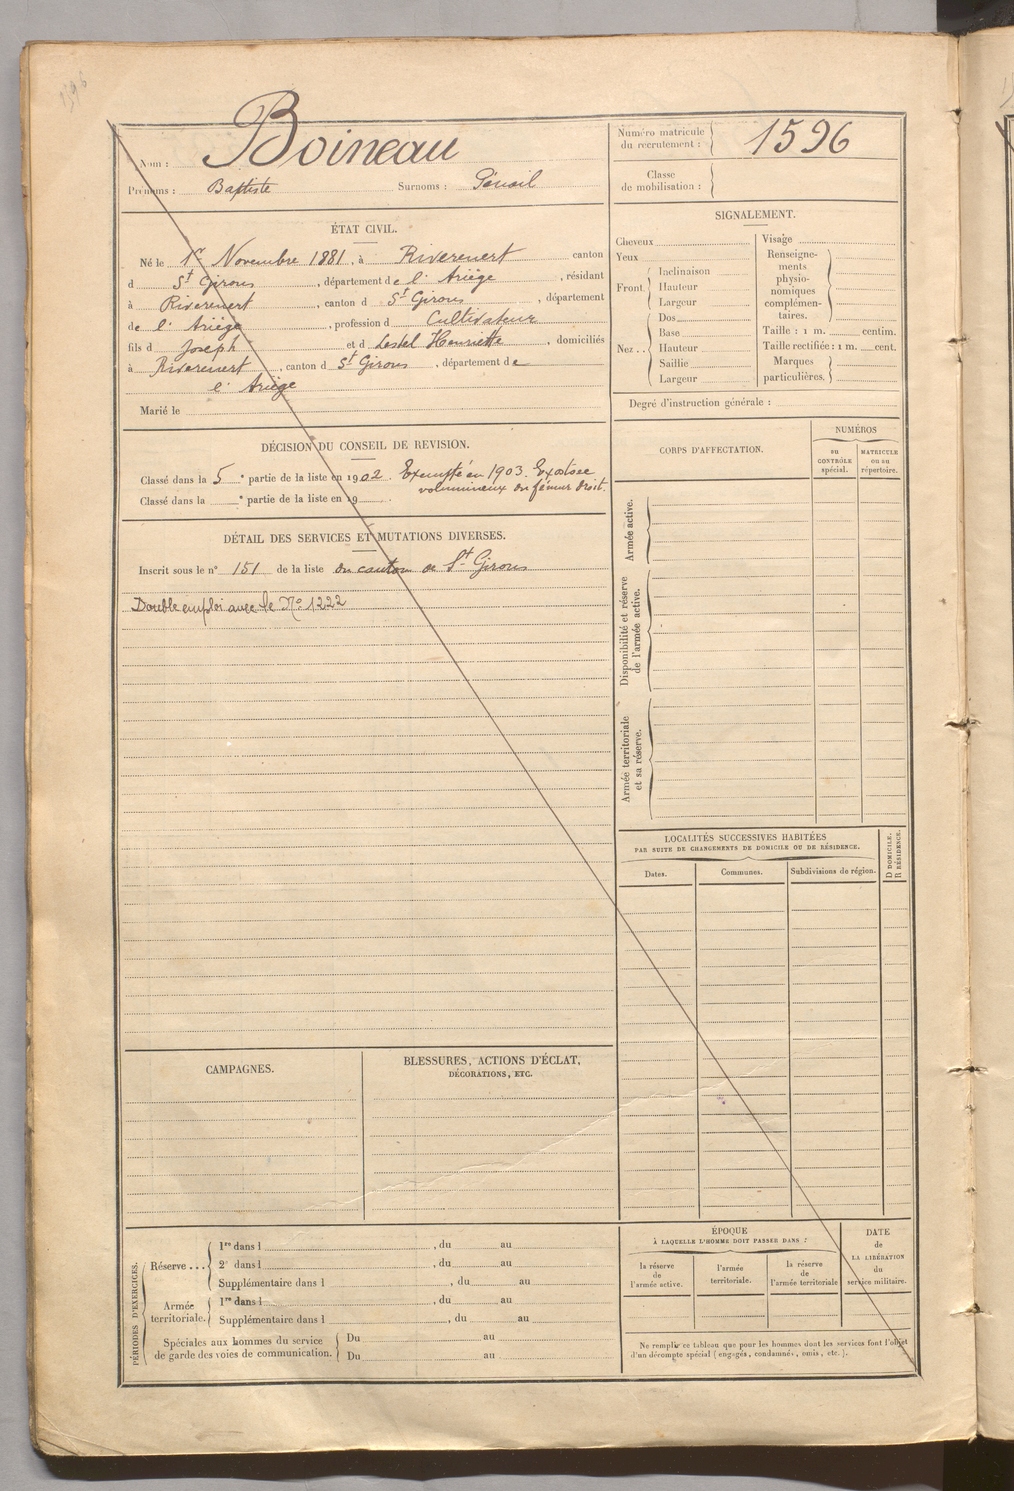 1596
Nom : Boineau
Prénoms : Baptiste Surnoms :
Numéro matricule du recrutement : 1596
Classe de mobilisation :
ÉTAT CIVIL.
Né le 1er Novembre 1881, à Riverenert canton
d St Girons, département de l'Ariège, résidant
à Riverenert, canton d St Girons, département
de l'Ariège, profession d Cultivateur
fils d Joseph et d Lestel Henriette, domiciliés
à Riverenert, canton d St Girons, département de
l'Ariège
Marié le
DÉCISION DU CONSEIL DE REVISION.
Classé dans la 5e partie de la liste en 1902. Exempté en 1903. Exostose
volumineux du fémur droit.
Classé dans la e partie de la liste en 19 .
DÉTAIL DES SERVICES ET MUTATIONS DIVERSES.
Inscrit sous le n° 151 de la liste du canton de St Girons
Double emploi avec le No 1222
CAMPAGNES.
BLESSURES, ACTIONS D'ÉCLAT,
DÉCORATIONS, ETC.
SIGNALEMENT.
Cheveux
Yeux
Front. Inclinaison
Hauteur
Largeur
Nez .. Dos
Base
Hauteur
Saillie
Largeur
Visage
Renseigne-
ments
physio-
nomiques
complémen-
taires.
Taille : 1 m. centim.
Taille rectifiée : 1 m. cent.
Marques
particulières.
Degré d'instruction générale :
CORPS D'AFFECTATION.
NUMÉROS
au
CONTRÔLE
spécial.
MATRICULE
ou au
répertoire.
Armée active.
Disponibilité et réserve
de l'armée active.
Armée territoriale
et sa réserve.
LOCALITÉS SUCCESSIVES HABITÉES
PAR SUITE DE CHANGEMENTS DE DOMICILE OU DE RÉSIDENCE.
Dates.
Communes.
Subdivisions de région.
D DOMICILE.
R RÉSIDENCE.
PÉRIODES D'EXERCICES.
Réserve ... 1re dans l , du au
2e dans l , du au
Supplémentaire dans l , du au
Armée
territoriale. 1re dans l , du au
Supplémentaire dans l , du au
Spéciales aux hommes du service
de garde des voies de communication. Du au
Du au
ÉPOQUE
À LAQUELLE L'HOMME DOIT PASSER DANS :
la réserve
de
l'armée active.
l'armée
territoriale.
la réserve
de
l'armée territoriale
DATE
de
LA LIBÉRATION
du
service militaire.
Ne remplir ce tableau que pour les hommes dont les services font l'objet
d'un décompte spécial (engagés, condamnés, omis, etc.).